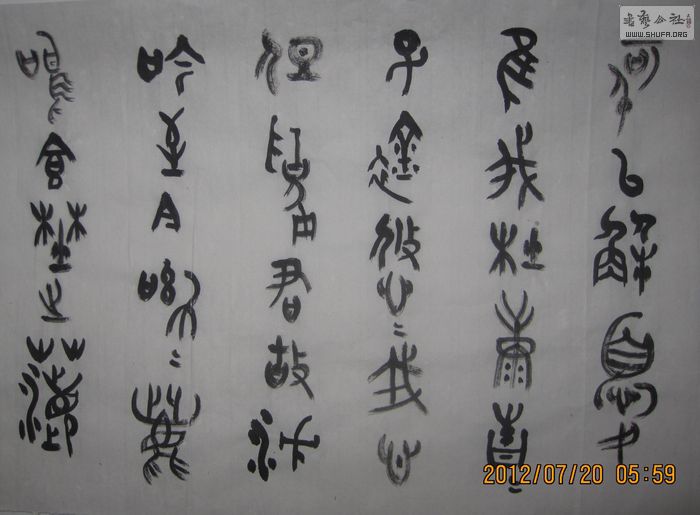 何以解憂
隹有杜康青=
子衿悠=我心
但為君故沈
吟至今呦=鹿
鳴食野之苹
書藝公社
WWW.SHUFA.ORG
2012/07/20 05:59